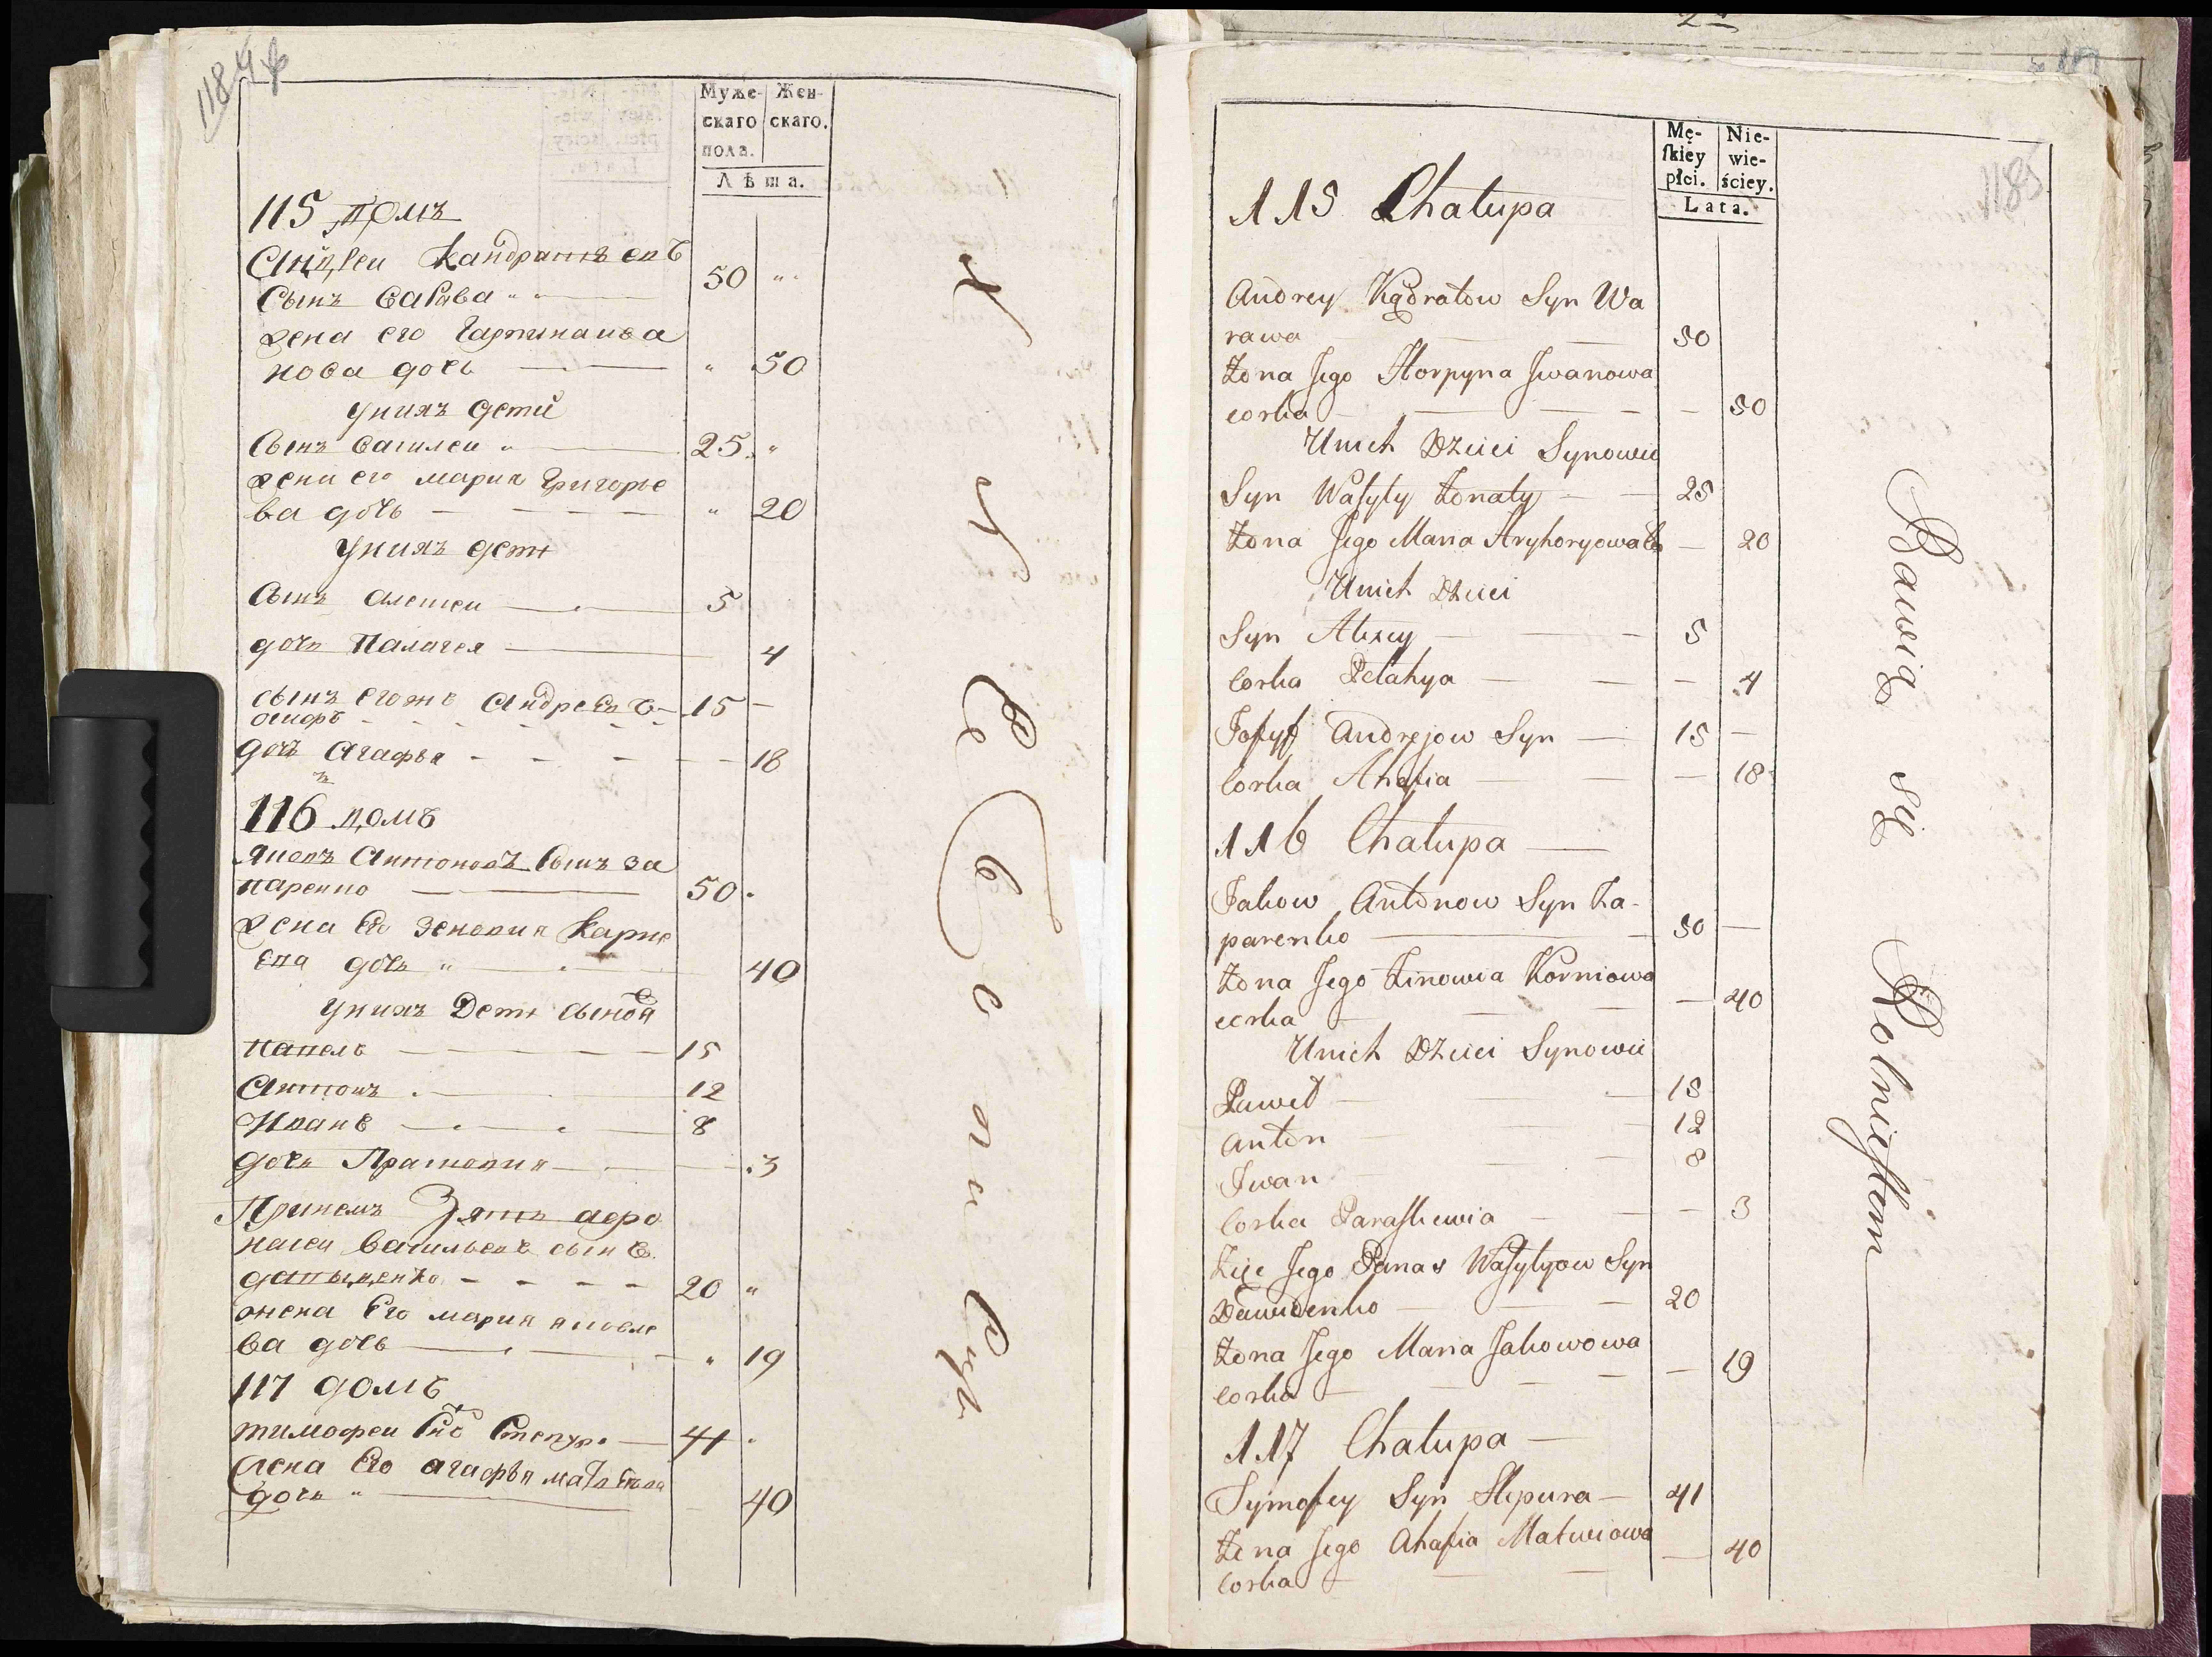 1184
Муже- Жен-
скаго скаго.
пола.
Лѣта.
115 домъ
Андреи Кандратъевъ
сынъ Варава 50
жена его Гарпина ива
нова дочь 50
у нихъ дети
Сынъ василеи 25
жена его мария григорье
ва дочь 20
у нихъ дети
Сынъ алексеи 5
дочь Палагея 4
сынъ егожъ Андреевъ 15
осифъ
дочъ Агафья 18
116 домъ
Яковъ Антоновъ сынъ за
паренко 50
жена Его зеновия Карне
ева дочь 40
у нихъ Дети сыновя
Павелъ 15
Антонъ 12
Иванъ 8
дочь Прасковия 3
Приемъ Зять афо
насеи васильевъ сынъ
давыденко 20
жена Его мария яковле
ва дочь 19
117 домъ
тимофеи Степура 41
жена Его агафья матвеева
дочь 40
Хлебопашцы
1185
Mę- Nie-
ſkiey wie-
płci. ściey.
Lata.
115 Chałupa
Andrey Kądratow Syn Wa
rawa 50
Żona Jego Horpyna Jwanowa
corka 50
Unich Dzieci Synowie
Syn Wasyly Żonaty 25
Żona Jego Maria Hryhoryowa 20
Unich Dzieci
Syn Alexey 5
Corka Pelahya 4
Josyf Andrejow Syn 15
Corka Ahafia 18
116 Chałupa
Jakow Antonow Syn Za-
parenko 50
Żona Jego Zinowia Korniowa
corka 40
Unich Dzieci Synowie
Paweł 15
Anton 12
Jwan 8
Corka Paraskiewia 3
Zięć Jego Panas Wasylyow Syn
Dawidenko 20
Żona Jego Maria Jakowowa
corka 19
117 Chałupa
Tymofey Syn Stepura 41
Żona Jego Ahafia Matwiowa
Corka 40
Bawią się Rolnictem